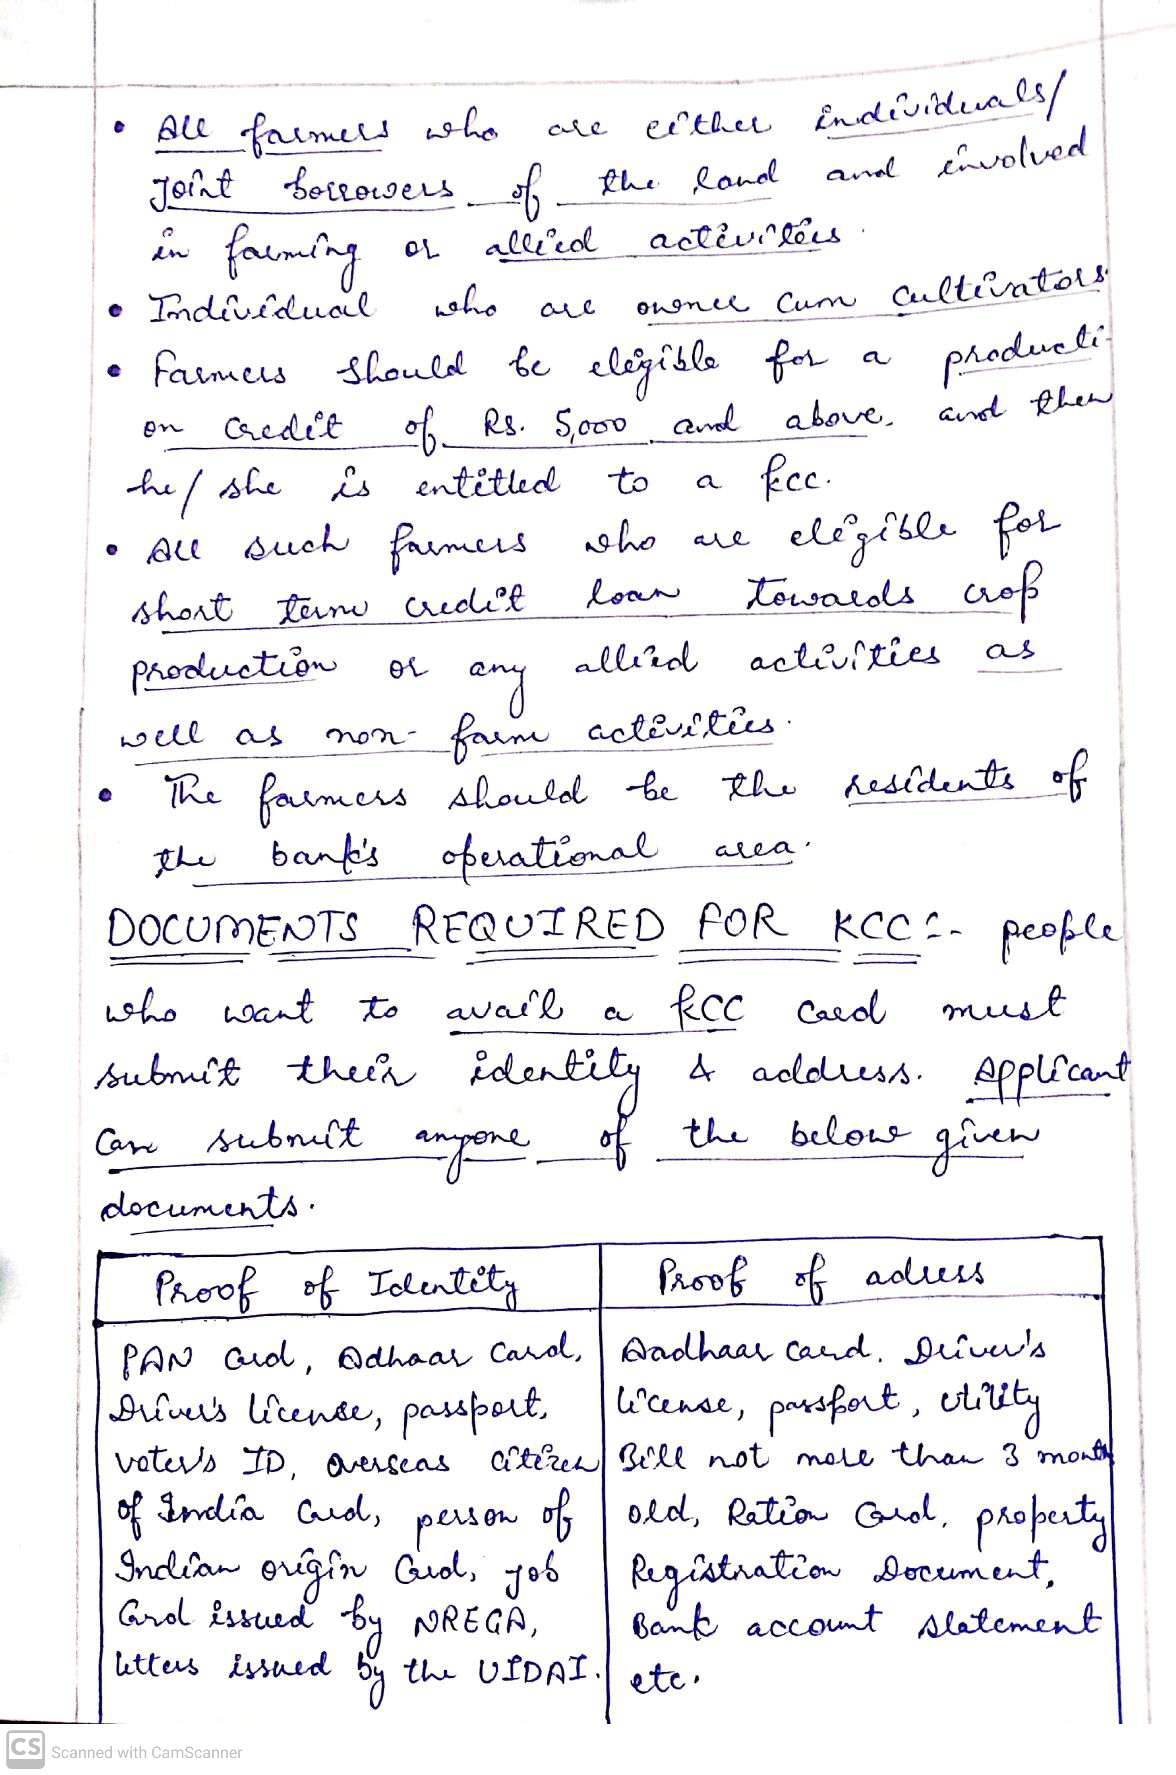 • All farmers who are either individuals/
Joint borrowers of the land and involved
in farming or allied activities.
• Individual who are owner cum cultivators.
• Farmers should be eligible for a producti-
on credit of Rs. 5,000 and above, and then
he/she is entitled to a kcc.
• All such farmers who are eligible for
short term credit loan towards crop
production or any allied activities as
well as non-farm activities.
• The farmers should be the residents of
the bank's operational area.
DOCUMENTS REQUIRED FOR KCC:- people
who want to avail a KCC card must
submit their identity & address. Applicant
can submit anyone of the below given
documents.
Proof of Identity
PAN Card, Adhaar Card,
Driver's license, passport,
voter's ID, Overseas citizen
of India Card, person of
Indian origin Card, job
Card issued by NREGA,
letters issued by the UIDAI.
Proof of adress
Aadhaar card, Driver's
license, passport, utility
Bill not more than 3 month
old, Ration Card, property
Registration Document,
Bank account statement
etc.
CS Scanned with CamScanner